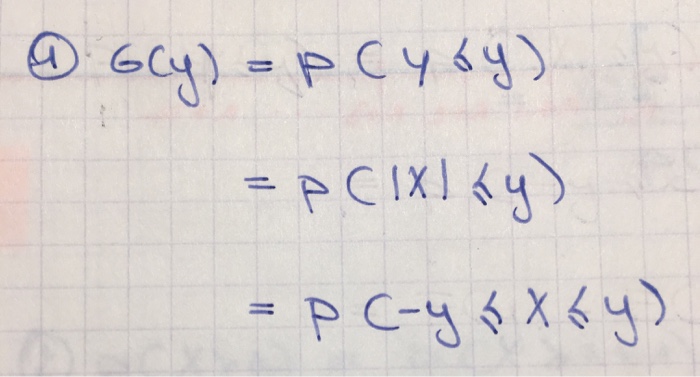 ① G(y) = P(Y ⩽ y)
= P(|X| ⩽ y)
= P(-y ⩽ X ⩽ y)